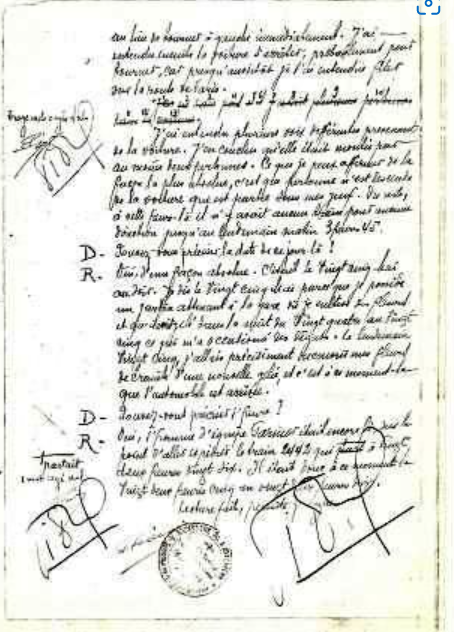 au lieu de tourner à gauche immédiatement. J'ai
entendu ensuite la voiture s'arrêter, probablement pour
tourner, car presqu'aussitôt je l'ai entendue filer
sur la route de Paris.
J'ai entendu plusieurs voix différentes provenant
de la voiture. J'en conclus qu'elle était montée par
au moins deux personnes. Ce que je peux affirmer de la
façon la plus absolue, c'est que personne n'est descendu
de la voiture qui est partie sous mes yeux. Du reste,
à cette heure-là il n'y avait aucun train pour aucune
direction jusqu'au lendemain matin 3 heures 45.
D- Pouvez-vous préciser la date de ce jour là ?
R- Oui, d'une façon absolue. C'était le vingt cinq mai
au soir. Je dis le vingt cinq mai parce que je possède
un jardin attenant à la gare où je cultive des fleurs
et qu'il gelait dans la nuit du vingt quatre au vingt
cinq ce qui m'a occasionné des dégâts. Le lendemain
vingt cinq, j'allais précisément recouvrir mes fleurs
de crainte d'une nouvelle gelée et c'est à ce moment-là
que l'automobile est arrivée.
D- Pouvez-vous préciser l'heure ?
R- Oui, l'homme d'équipe était encore là sur le
point d'aller expédier le train 2442 qui passait à vingt
deux heures vingt six. Il était donc à ce moment là
vingt deux heures cinq ou vingt deux heures dix.
Lecture faite, persiste